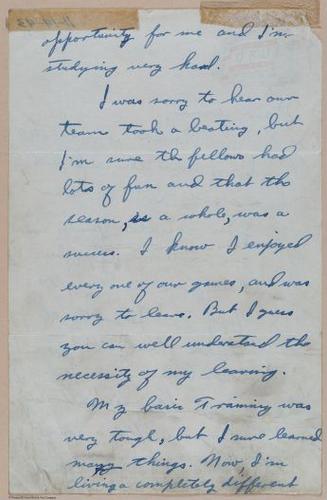 opportunity for me and I'm
studying very hard.
I was sorry to hear our
team took a beating, but
I'm sure the fellows had
lots of fun and that the
season, as a whole, was a
success. I know I enjoyed
every one of our games, and was
sorry to leave. But I guess
you can well understand the
necessity of my leaving.
My basic Training was
very tough, but I sure learned
many things. Now, I'm
living a completely different